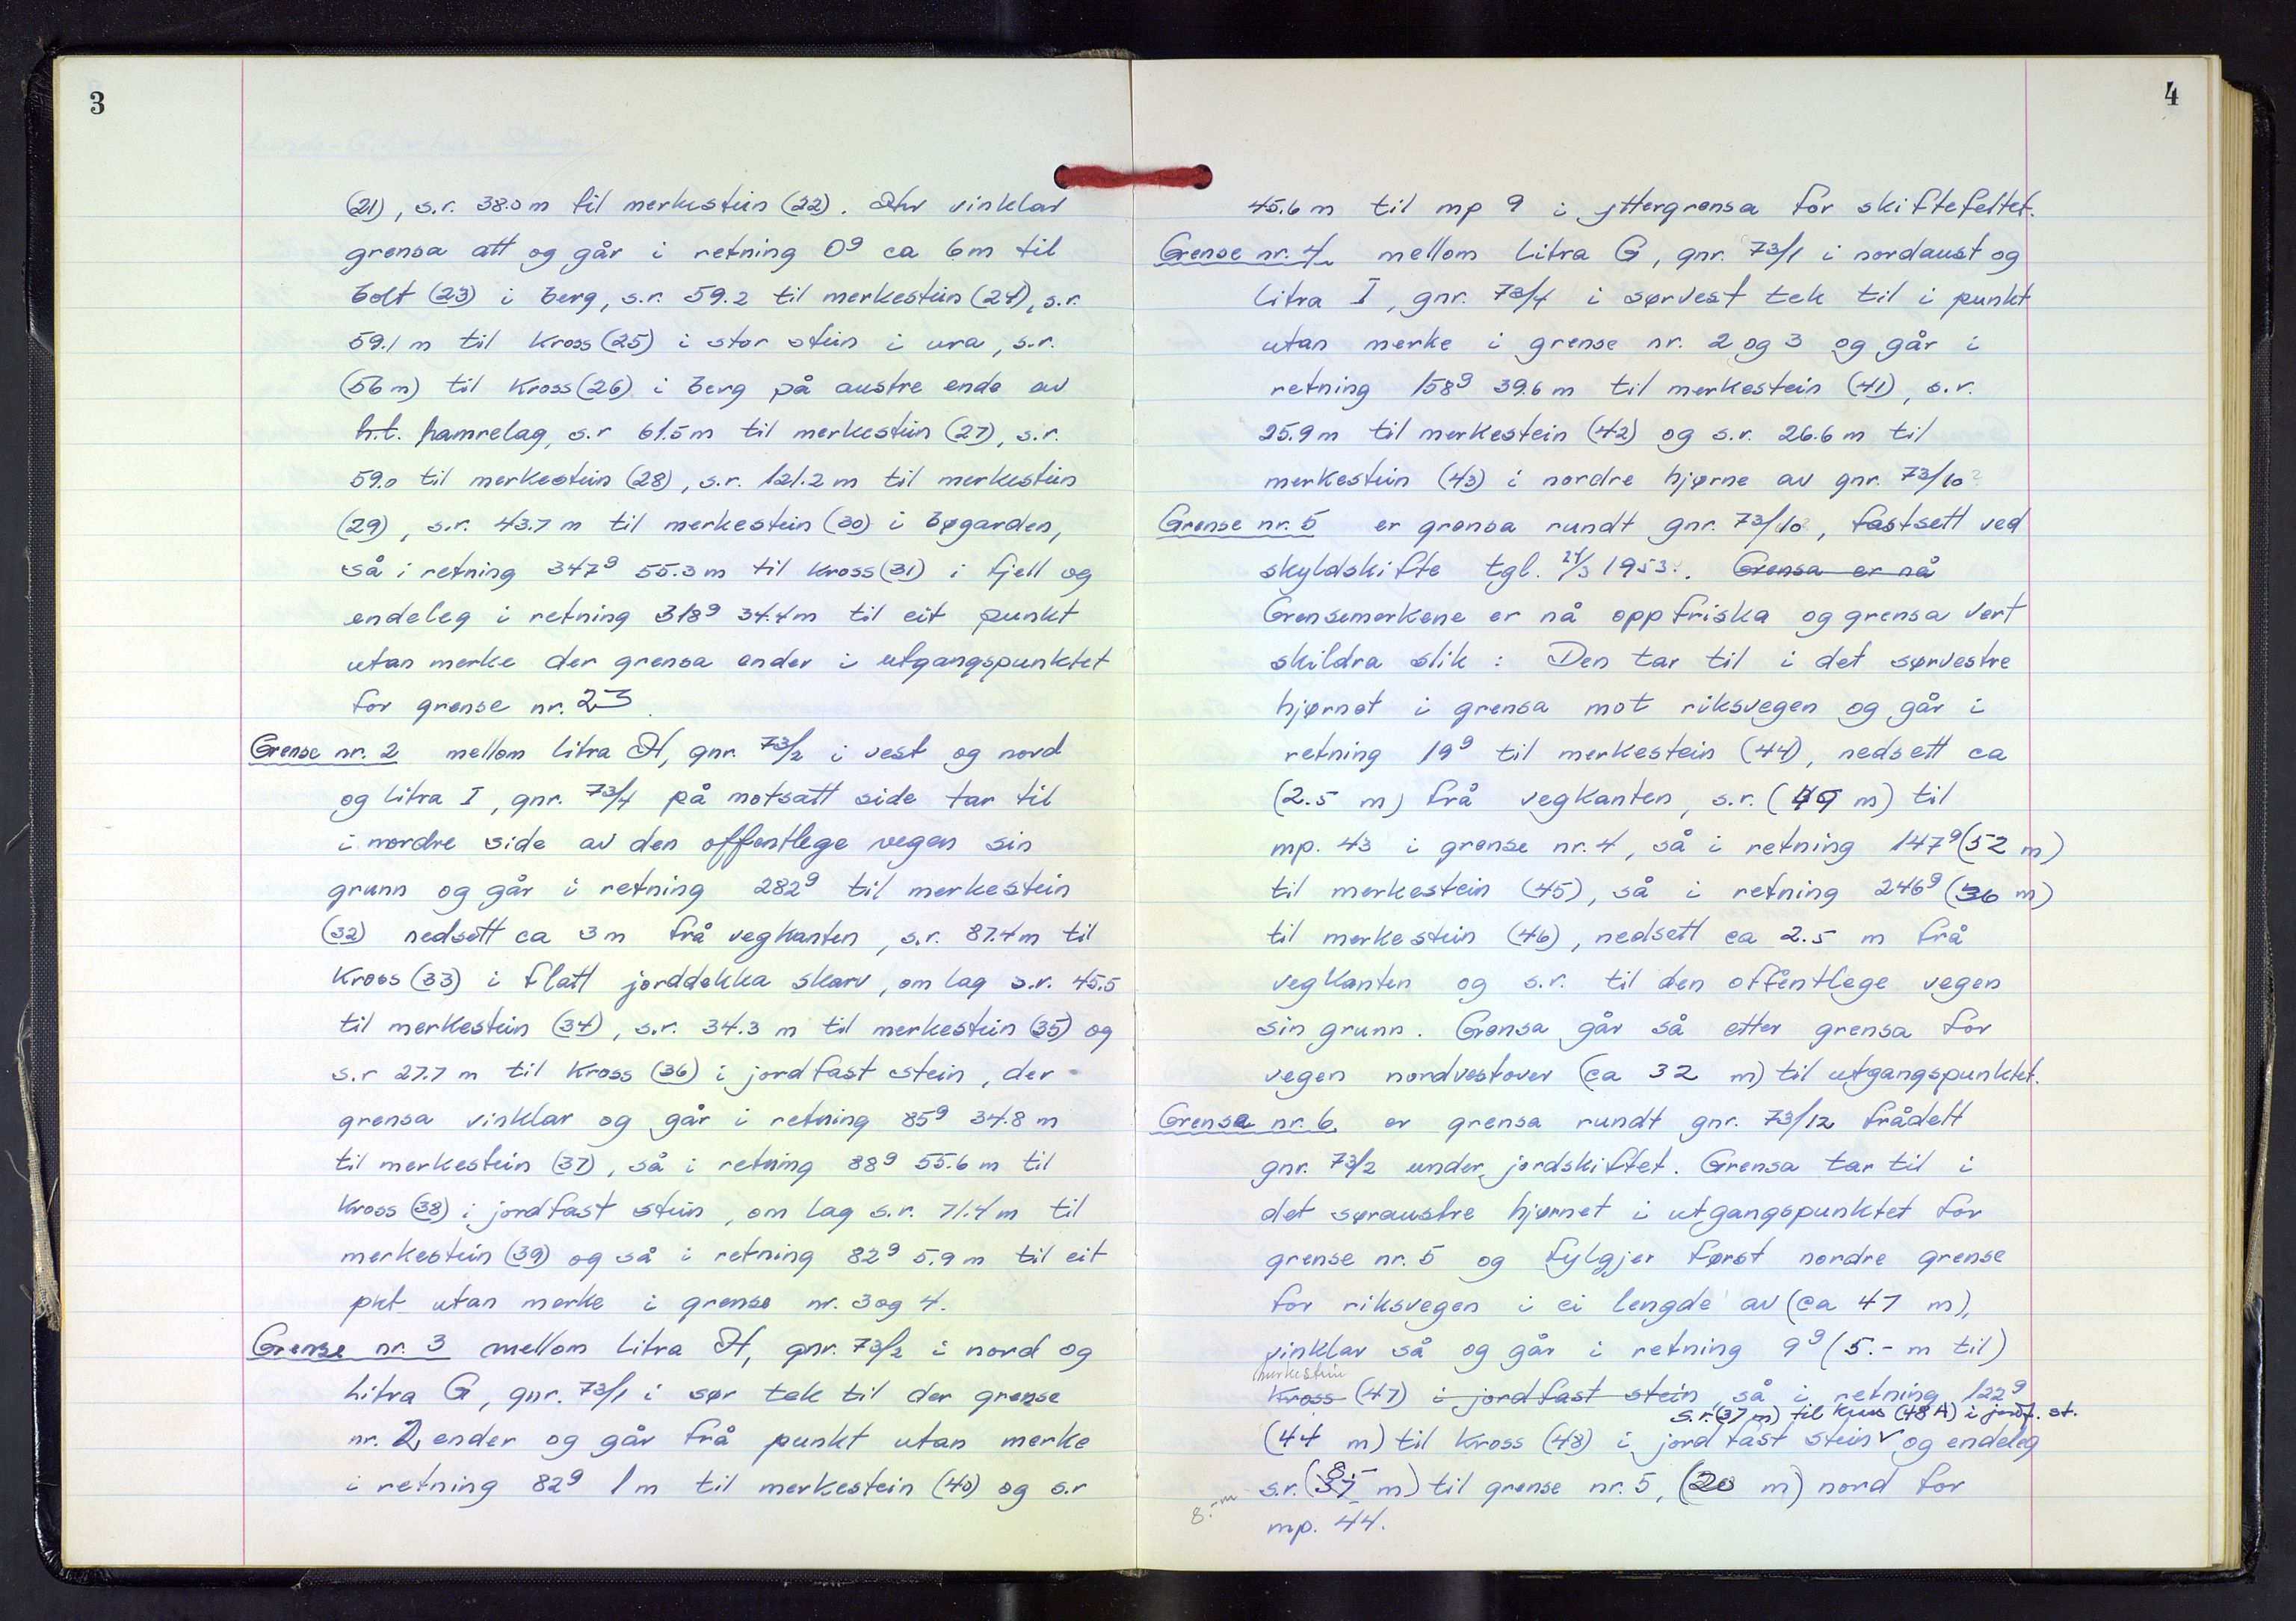 3
(21), s.r. 38.0 m til merkestein (22). Her vinklar
grensa att og går i retning 0ᵍ ca 6m til
bolt (23) i berg, s.r. 59.2 til merkestein (24), s.r.
59.1 m til kross (25) i stor stein i ura, s.r.
(56 m) til kross (26) i berg på austre ende av
h.t. hamrelag, s.r 61.5 m til merkestein (27), s.r.
59.0 til merkestein (28), s.r. 121.2 m til merkestein
(29), s.r. 43.7 m til merkestein (30) i bøgarden,
så i retning 347ᵍ 55.3 m til kross (31) i fjell og
endeleg i retning 318ᵍ 34.4 m til eit punkt
utan merke der grensa ender i utgangspunktet
for grense nr. 23.
Grense nr. 2 mellom litra H, gnr. 73/2 i vest og nord
og litra I, gnr. 73/4 på motsatt side tar til
i nordre side av den offentlege vegen sin
grunn og går i retning 282ᵍ til merkestein
(32) nedsett ca 3 m frå vegkanten, s.r. 87.4 m til
kross (33) i flatt jorddekka skarv, om lag s.r. 45.5
til merkestein (34), s.r. 34.3 m til merkestein (35) og
s.r 27.7 m til kross (36) i jordfast stein, der
grensa vinklar og går i retning 85ᵍ 34.8 m
til merkestein (37), så i retning 88ᵍ 55.6 m til
kross (38) i jordfast stein, om lag s.r. 71.4 m til
merkestein (39) og så i retning 82ᵍ 5.9 m til eit
pkt utan merke i grense nr. 3 og 4.
Grense nr. 3 mellom litra H, gnr. 73/2 i nord og
Litra G, gnr. 73/1 i sør tek til der grense
nr. 2 ender og går frå punkt utan merke
i retning 82ᵍ 1 m til merkestein (40) og s.r
4
45.6 m til mp 9 i yttergrensa for skiftefeltet.
Grense nr. 4 mellom litra G, gnr. 73/1 i nordaust og
litra I, gnr. 73/4 i sørvest tek til i punkt
utan merke i grense nr. 2 og 3 og går i
retning 158ᵍ 39.6 m til merkestein (41), s.r.
25.9 m til merkestein (42) og s.r. 26.6 m til
merkestein (43) i nordre hjørne av gnr. 73/10
Grense nr. 5 er grensa rundt gnr. 73/10, fastsett ved
skyldskifte tgl. 24/3 1953. Grensa er nå
Grensemerkene er nå oppfriska og grensa vert
skildra slik : Den tar til i det sørvestre
hjørnet i grensa mot riksvegen og går i
retning 19ᵍ til merkestein (44), nedsett ca
(2.5 m) frå vegkanten, s.r. (49 m) til
mp. 43 i grense nr. 4, så i retning 147ᵍ (52 m)
til merkestein (45), så i retning 246ᵍ (36 m)
til merkestein (46), nedsett ca 2.5 m frå
vegkanten og s.r. til den offentlege vegen
sin grunn. Grensa går så etter grensa for
vegen nordvestover (ca 32 m) til utgangspunktet.
Grensa nr. 6 er grensa rundt gnr. 73/12 frådelt
gnr. 73/2 under jordskiftet. Grensa tar til i
det søraustre hjørnet i utgangspunktet for
grense nr. 5 og fylgjer først nordre grense
for riksvegen i ei lengde av (ca 47 m),
vinklar så og går i retning 9ᵍ (5.- m til)
merkestein
kross (47) i jordfast stein, så i retning 122ᵍ
s.r. (37 m) til kross (48 A) i jordf. st.
(44 m) til kross (48) i jordfast stein ✓ og endeleg
8.-
s.r. (37 m) til grense nr. 5, (20 m) nord for
8.- m
mp. 44.